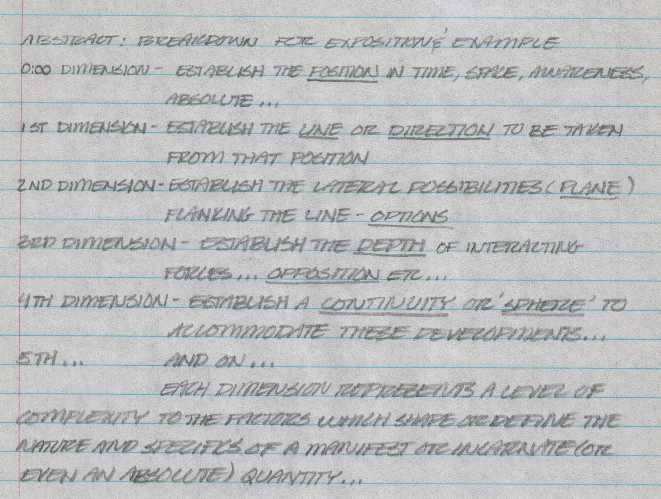 ABSTRACT: BREAKDOWN FOR EXPOSITION & EXAMPLE
0:00 DIMENSION - ESTABLISH THE POSITION IN TIME, SPACE, AWARENESS,
ABSOLUTE...
1ST DIMENSION - ESTABLISH THE LINE OR DIRECTION TO BE TAKEN
FROM THAT POSITION
2ND DIMENSION - ESTABLISH THE LATERAL POSSIBILITIES (PLANE)
FLANKING THE LINE - OPTIONS
3RD DIMENSION - ESTABLISH THE DEPTH OF INTERACTING
FORCES... OPPOSITION ETC...
4TH DIMENSION - ESTABLISH A CONTINUITY OR 'SPHERE' TO
ACCOMMODATE THESE DEVELOPMENTS...
5TH... AND ON...
EACH DIMENSION REPRESENTS A LEVEL OF
COMPLEXITY TO THE FACTORS WHICH SHAPE OR DEFINE THE
NATURE AND SPECIFICS OF A MANIFEST OR INCARNATE (OR
EVEN AN ABSOLUTE) QUANTITY...